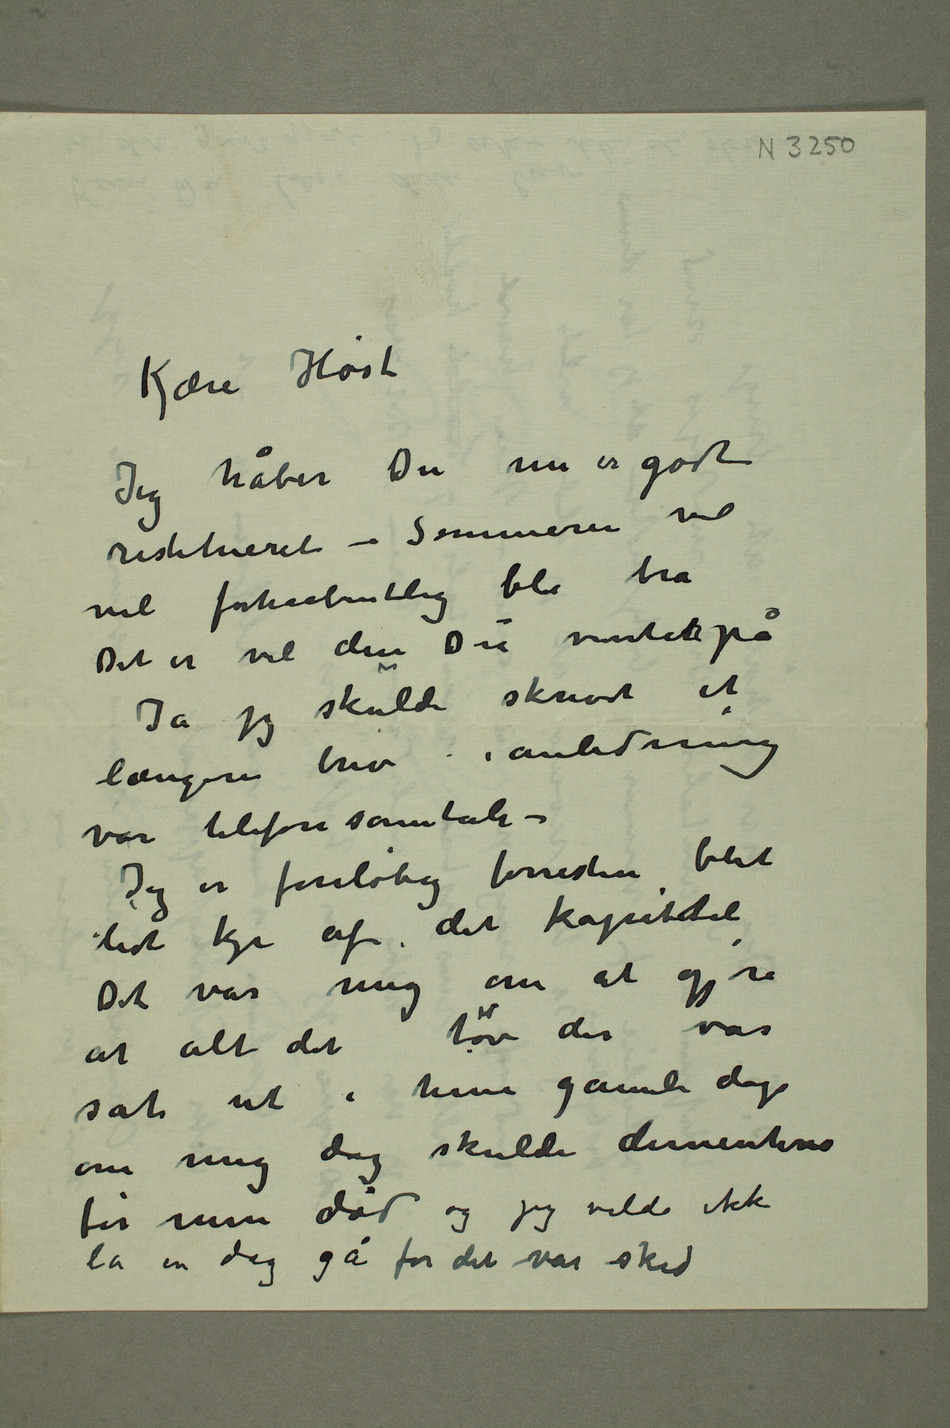 N 3250
Kjære Høst
Jeg håber Du nu er godt
restitueret – Sommeren vel
vel forhaabentlig bli bra
Det er vel den Du venter på
Ja jeg skulde skrevet et
længere brev i anledning
vor telefonsamtale –
Jeg er foreløbig forresten blet
lidt kje af det kapittel
Det var mig om at gjøre
at alt det tøv der var
sat ut i hine gamle dage
om mig dog skulde dementeres
før min død og jeg vilde ikke
la en dag gå før det var sked